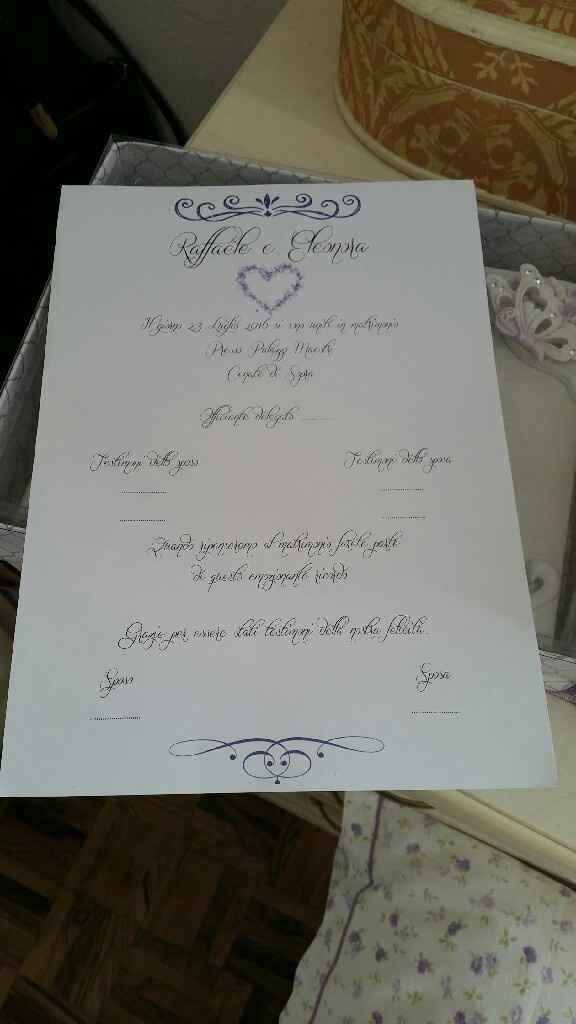 Raffaele e Eleonora
Il giorno 23 Luglio 2016 si sono uniti in matrimonio
Presso Palazzo Maestri
Cenate di Sopra
Officiante delegato ..........
Testimoni dello sposo
Testimoni della sposa
....................
....................
....................
....................
Quando ripenseremo al matrimonio farete parte
di questo emozionante ricordo
Grazie per essere stati testimoni della nostra felicità.
Sposo
Sposa
....................
....................